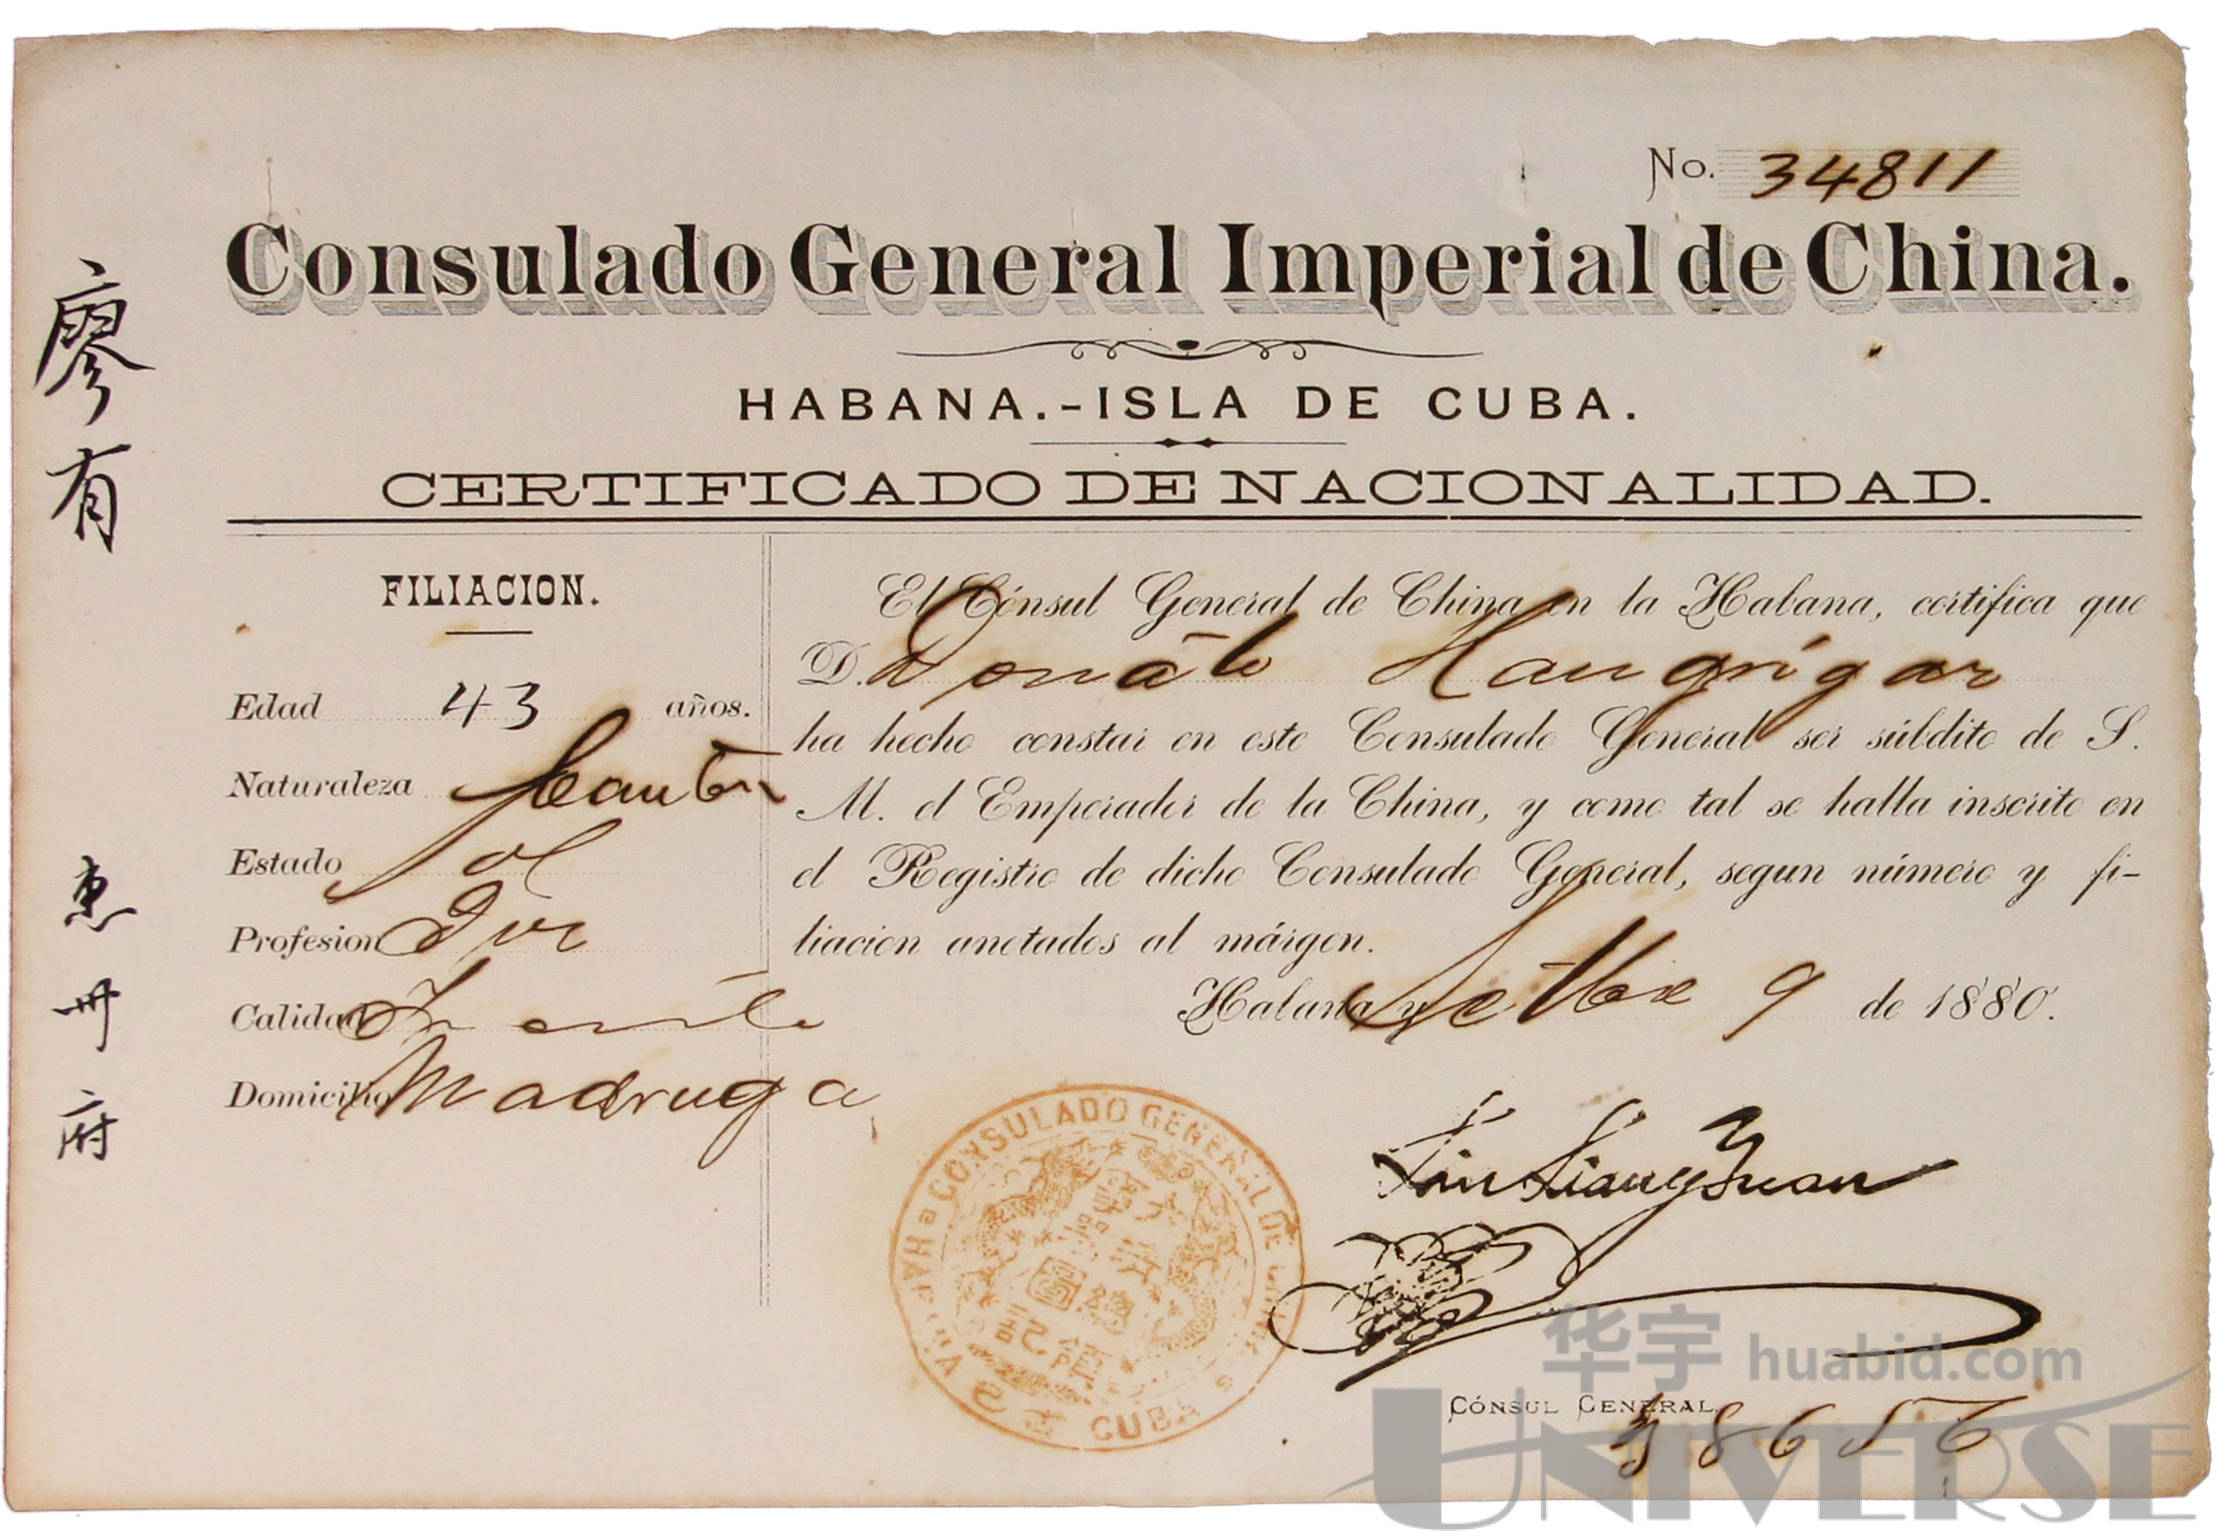 No. 34811
Consulado General Imperial de China.
HABANA.-ISLA DE CUBA.
CERTIFICADO DE NACIONALIDAD.
廖有
惠州府
FILIACION.
Edad 43 años.
Naturaleza Canton
Estado Sol
Profesion
Calidad
Domicilio Madruga
El Cónsul General de China en la Habana, certifica que
D. Donato
ha hecho constar en este Consulado General ser súbdito de S.
M. el Emperador de la China, y como tal se halla inscrito en
el Registro de dicho Consulado General, segun número y fi-
liacion anotados al márgen.
Habana y Setbre 9 de 1880.
CONSULADO GENERAL DE
CUBA
Lin Liang Yuan
CÓNSUL GENERAL.
华宇 huabid.com
UNIVERSE